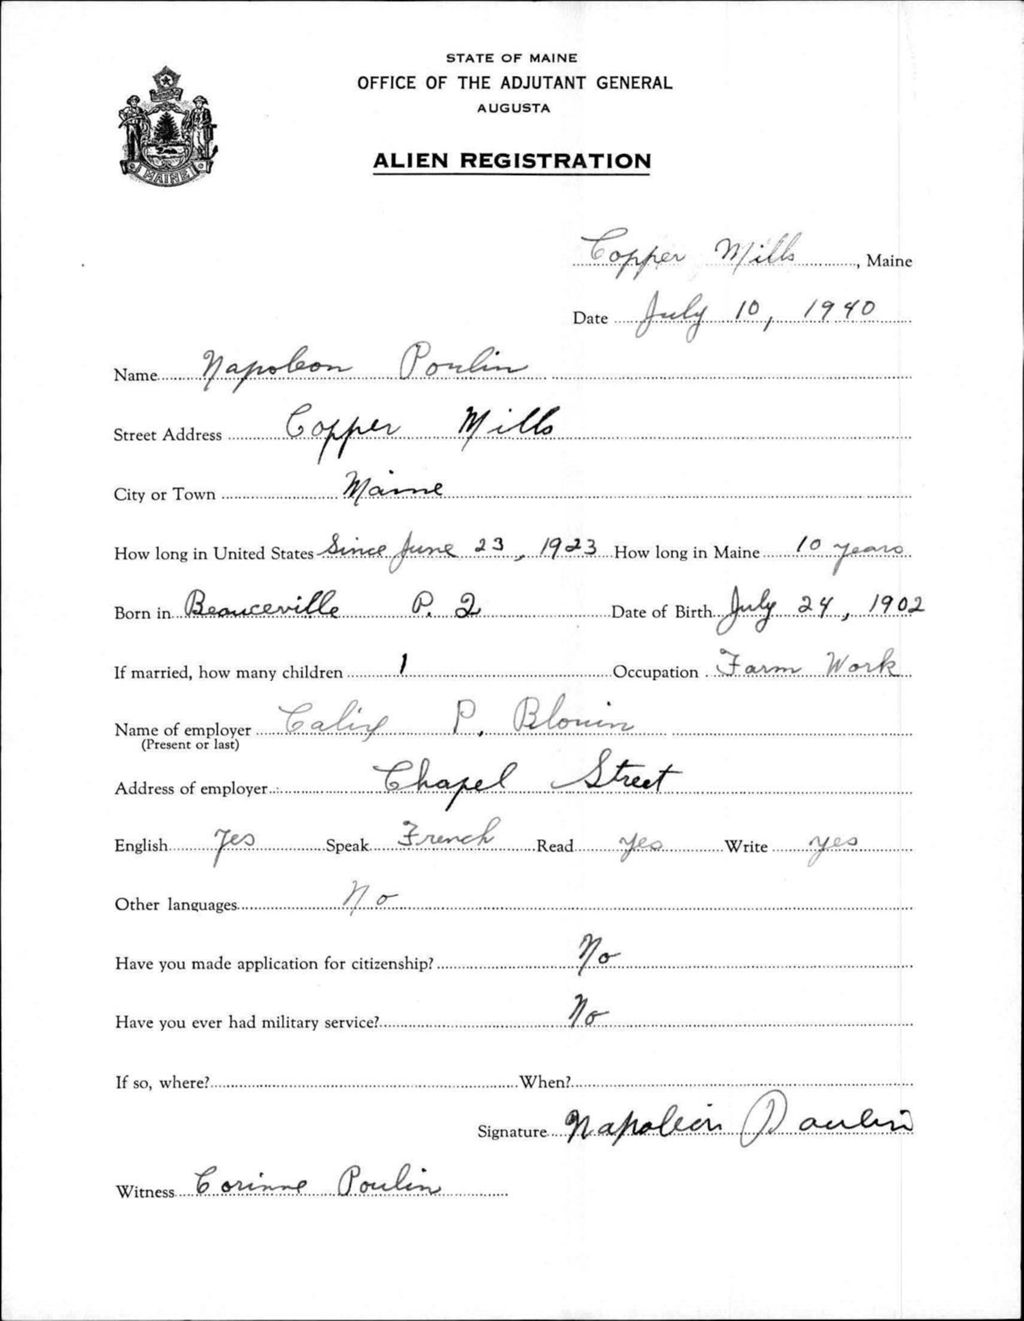 STATE OF MAINE
OFFICE OF THE ADJUTANT GENERAL
AUGUSTA
ALIEN REGISTRATION
MAINE
Copper Mills, Maine
Date July 10, 1940
Name Napoleon Poulin
Street Address Copper Mills
City or Town Maine
How long in United States Since June 23, 1923 How long in Maine 10 years
Born in Beauceville P. Q Date of Birth July 24, 1902
If married, how many children 1 Occupation Farm Work
Name of employer Calix P. Blouin
(Present or last)
Address of employer Chapel Street
English Yes Speak French Read yes Write yes
Other languages No
Have you made application for citizenship? No
Have you ever had military service? No
If so, where? When?
Signature Napoleon Poulin
Witness Corinne Poulin